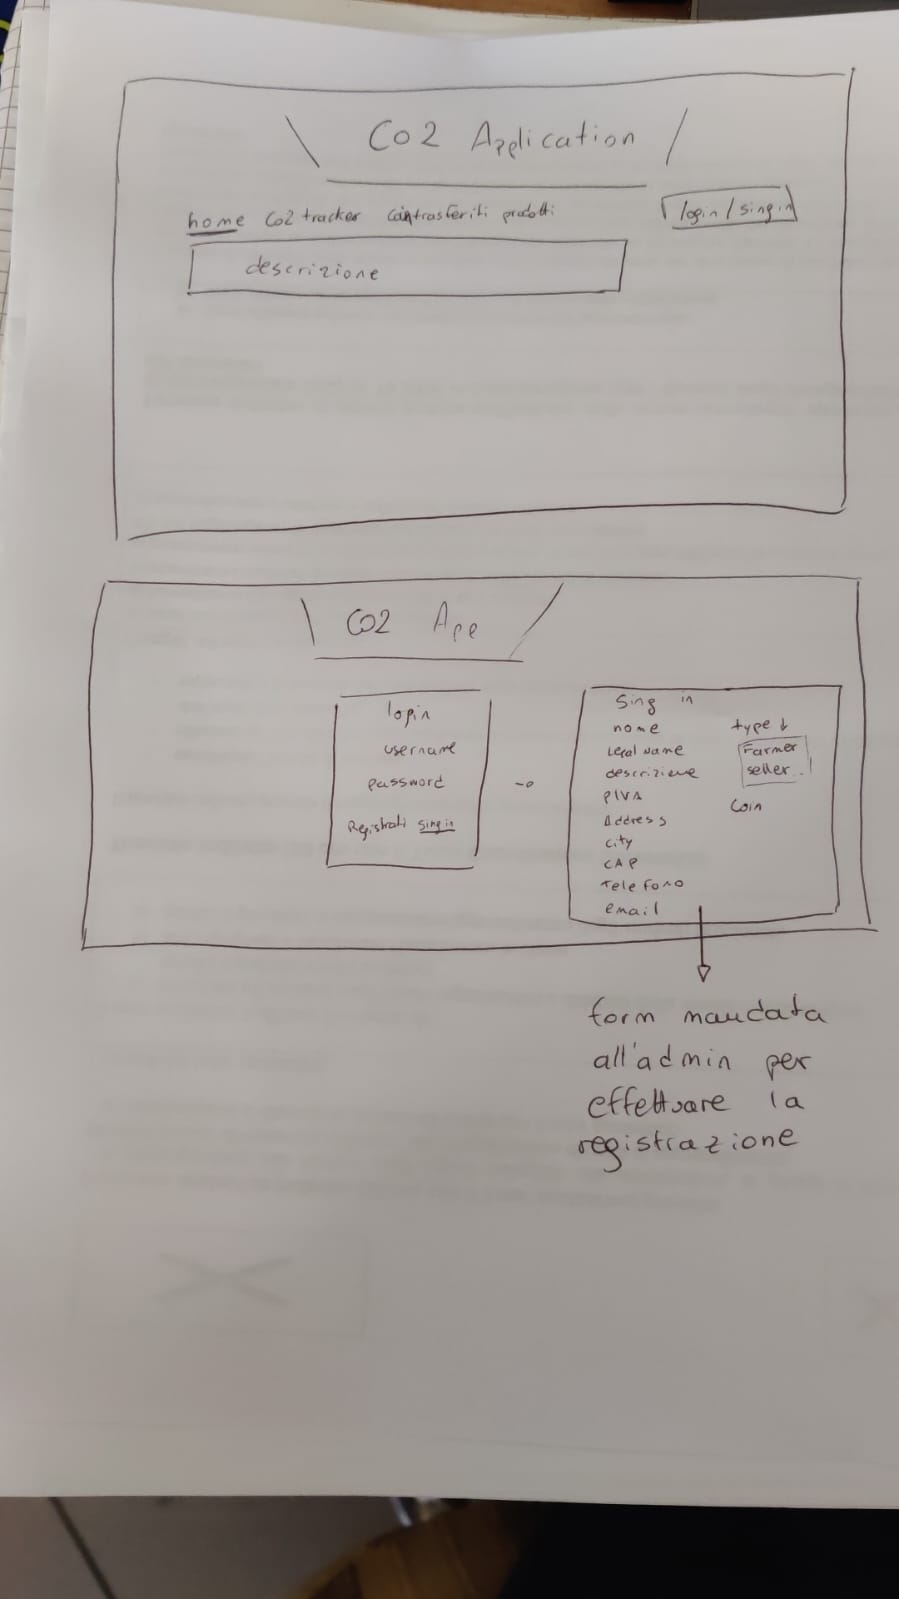 Co2 Application
home Co2 tracker trasferiti prodotti login/singin
descrizione
CO2 App
login
username
password
Registrati singin
Sing in
nome
Legal Name
descrizione
PIVA
Address
city
CAP
Telefono
email
type ↓
Farmer
seller..
Coin
form mandata
all'admin per
effettuare la
registrazione